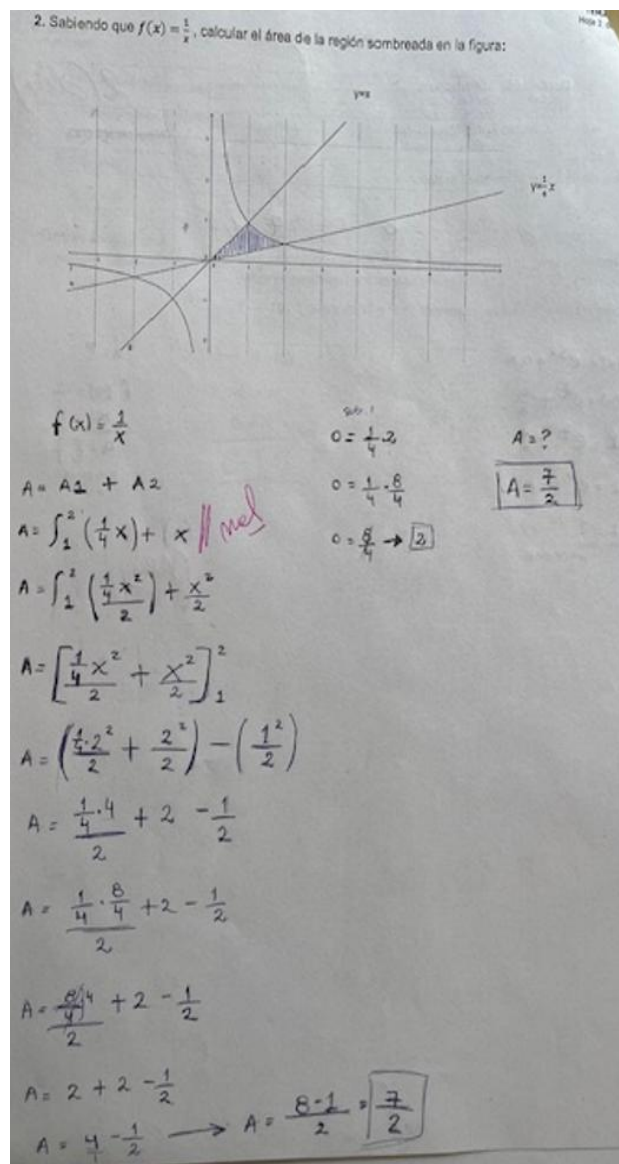 Hoja 2
2. Sabiendo que f(x) = 1/x, calcular el área de la región sombreada en la figura:
y=x
y=1/4 x
f(x) = 1/x
A = A1 + A2
A = ∫₁² (1/4 x) + (x
A = ∫₁² (1/4 x²/2) + x²/2
A = [1/4 x²/2 + x²/2]₁²
A = (1/4·2²/2 + 2²/2) - (1²/2)
A = (1/4·4)/2 + 2 - 1/2
A = (1/4 · 8/4)/2 + 2 - 1/2
A = + 2 - 1/2
A = 2 + 2 - 1/2
A = 4/1 - 1/2 → A = (8-1)/2 = 7/2
0 = 1/4·2
0 = 1/4 · 8/4
0 = 8/4 → 2
A = ?
A = 7/2